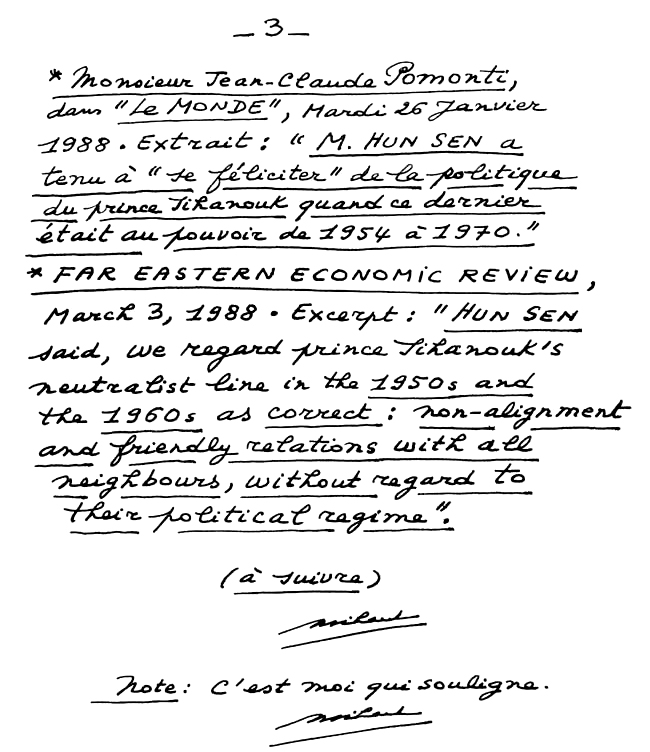 _ 3 _
* Monsieur Jean-Claude Pomonti,
dans "LE MONDE", Mardi 26 Janvier
1988. Extrait : " M. HUN SEN a
tenu à "se féliciter" de la politique
du prince Sihanouk quand ce dernier
était au pouvoir de 1954 à 1970."
* FAR EASTERN ECONOMIC REVIEW,
March 3, 1988. Excerpt : "HUN SEN
said, we regard prince Sihanouk's
neutralist line in the 1950s and
the 1960s as correct : non-alignment
and friendly relations with all
neighbours, without regard to
their political regime".
(à suivre)
Note : C'est moi qui souligne.